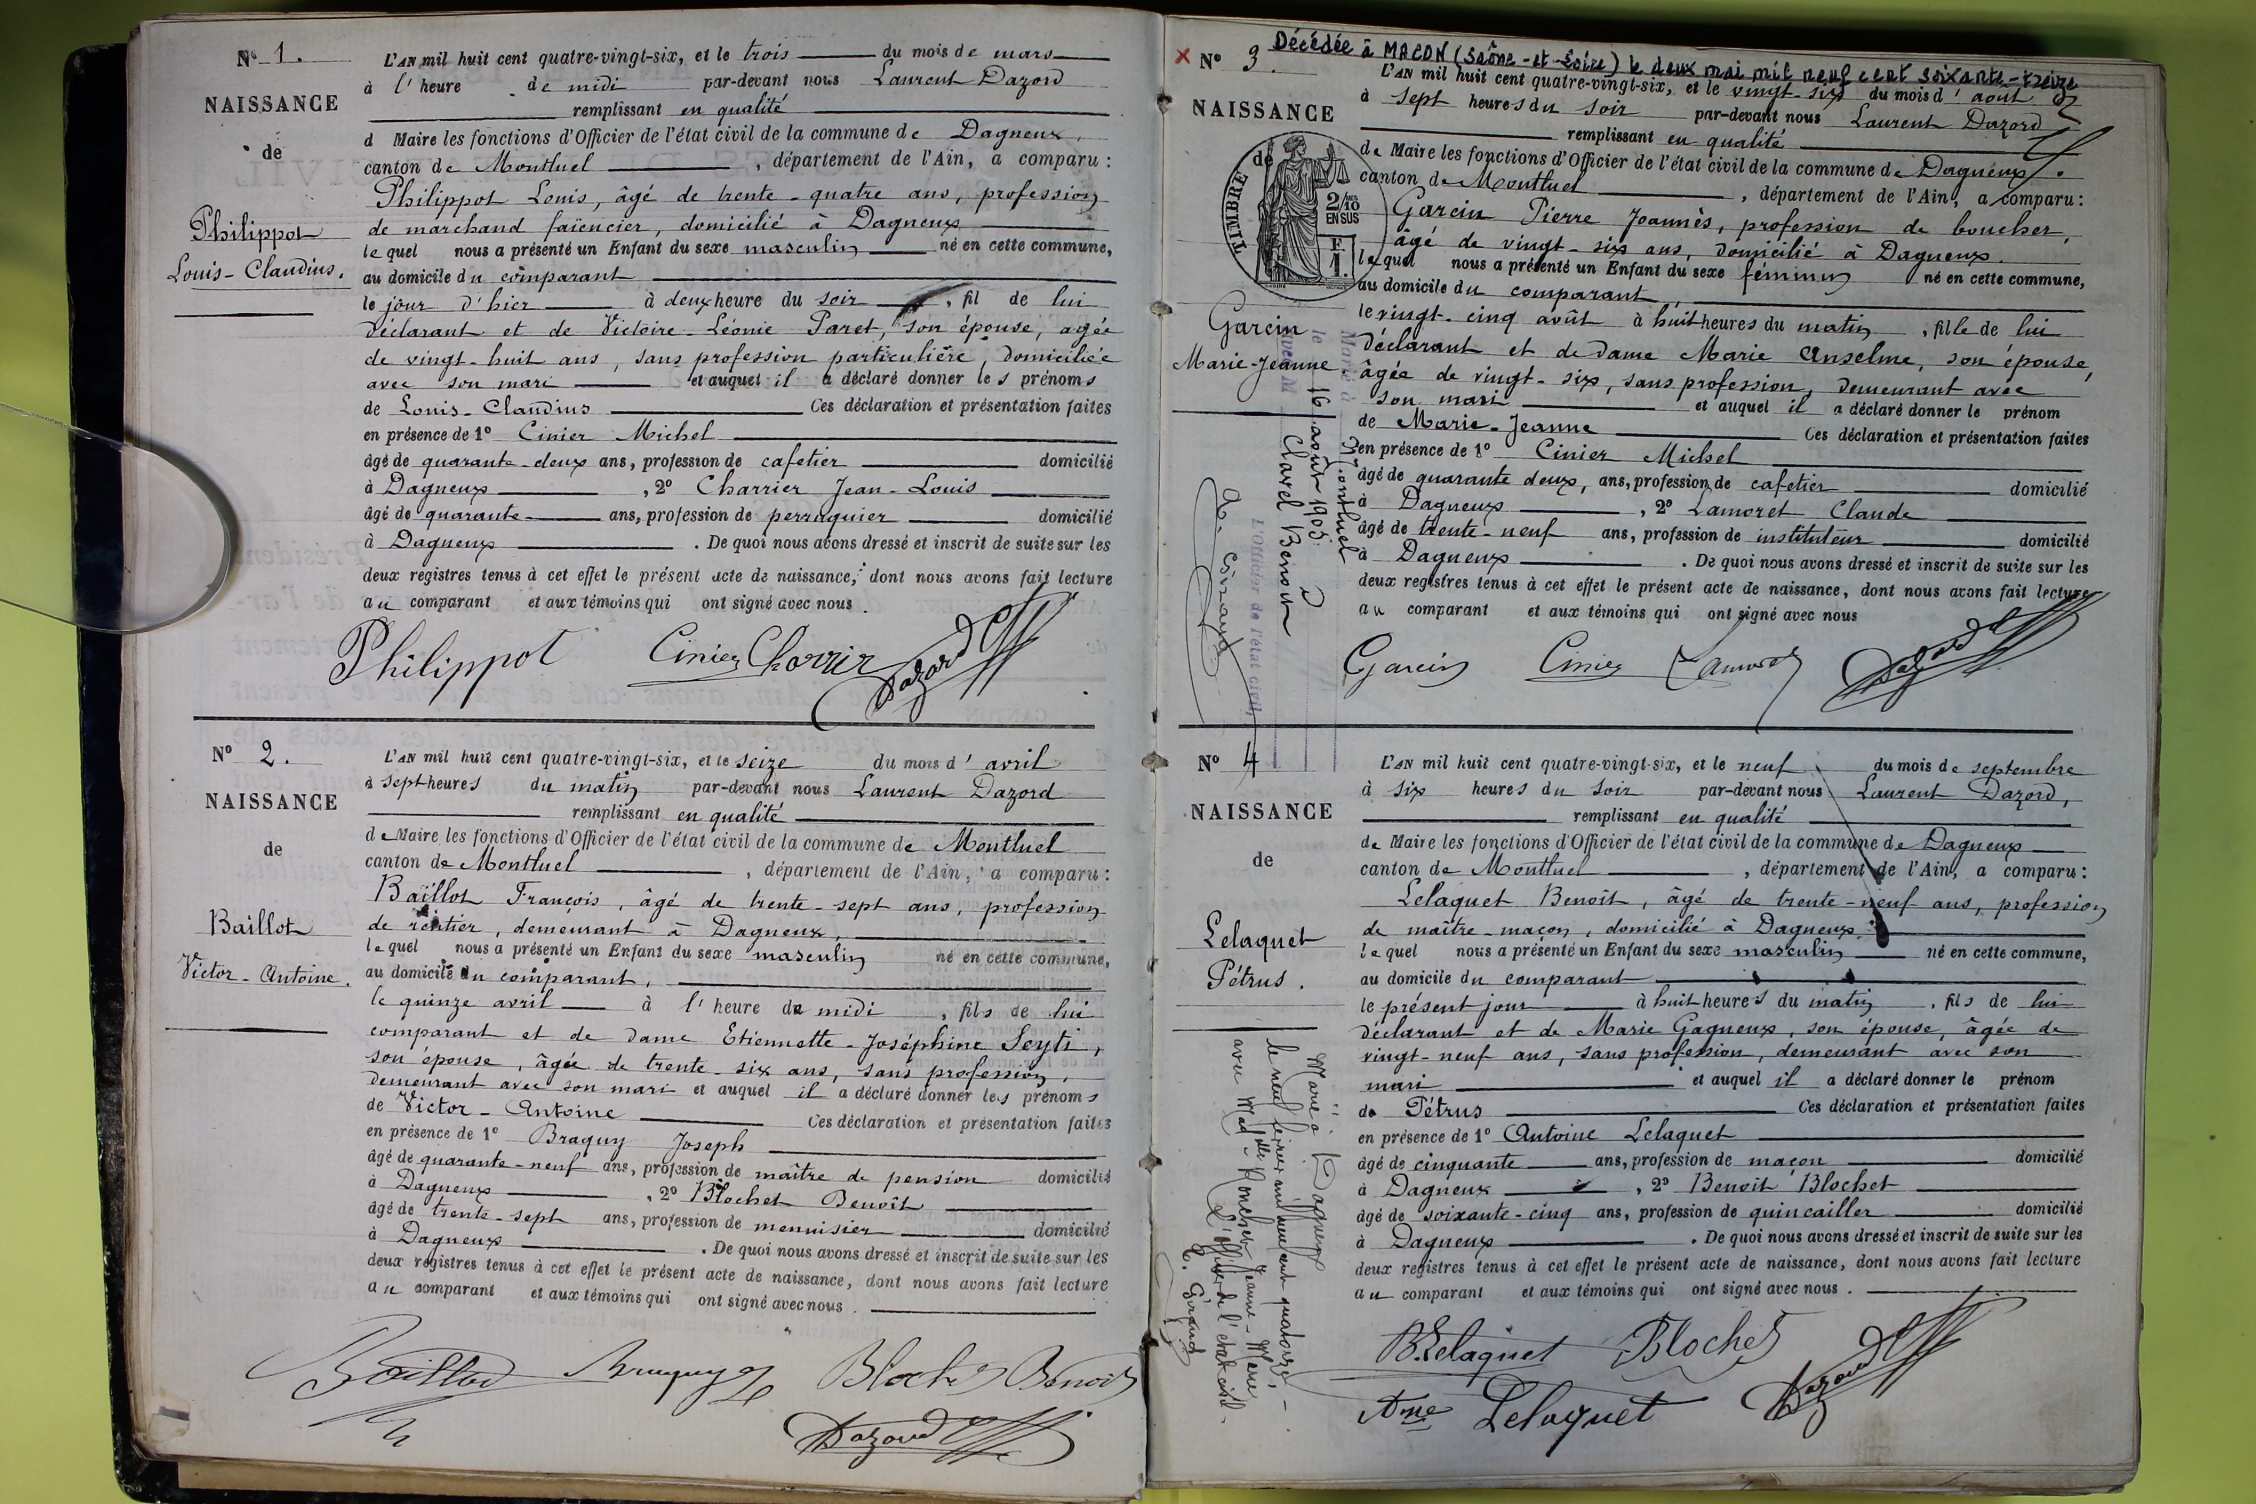 N° 1.
NAISSANCE
de
Philippot
Louis-Claudius.
L'AN mil huit cent quatre-vingt-six, et le trois du mois de mars
à l'heure de midi par-devant nous Laurent Dazord
remplissant en qualité
d Maire les fonctions d'Officier de l'état civil de la commune de Dagneux,
canton de Montluel, département de l'Ain, a comparu:
Philippot Louis, âgé de trente-quatre ans, profession
de marchand faïencier, domicilié à Dagneux
lequel nous a présenté un Enfant du sexe masculin né en cette commune,
au domicile du comparant
le jour d'hier à deux heure du soir, fil de lui
déclarant et de Victoire-Léonie Paret, son épouse, agée
de vingt-huit ans, sans profession particulière, domiciliée
avec son mari et auquel il a déclaré donner les prénoms
de Louis-Claudius Ces déclaration et présentation faites
en présence de 1° Cinier Michel
âgé de quarante-deux ans, profession de cafetier domicilié
à Dagneux, 2° Charrier Jean-Louis
âgé de quarante ans, profession de perruquier domicilié
à Dagneux. De quoi nous avons dressé et inscrit de suite sur les
deux registres tenus à cet effet le présent acte de naissance, dont nous avons fait lecture
au comparant et aux témoins qui ont signé avec nous.
Philippot Cinier Charrier Dazord
N° 2.
NAISSANCE
de
Baillot
Victor-Antoine.
L'AN mil huit cent quatre-vingt-six, et le seize du mois d'avril
à sept heures du matin par-devant nous Laurent Dazord
remplissant en qualité
de Maire les fonctions d'Officier de l'état civil de la commune de Montluel
canton de Montluel, département de l'Ain, a comparu:
Baïllot François, âgé de trente-sept ans, profession
de rentier, demeurant à Dagneux,
lequel nous a présenté un Enfant du sexe masculin né en cette commune,
au domicile du comparant,
le quinze avril à l'heure de midi, fils de lui
comparant et de dame Etiennette-Joséphine Seyti,
son épouse, âgée de trente-six ans, sans profession,
demeurant avec son mari et auquel il a déclaré donner les prénoms
de Victor-Antoine Ces déclaration et présentation faites
en présence de 1° Braguy Joseph
âgé de quarante-neuf ans, profession de maître de pension domicilié
à Dagneux, 2° Blochet Benoît
âgé de trente-sept ans, profession de menuisier domicilié
à Dagneux. De quoi nous avons dressé et inscrit de suite sur les
deux registres tenus à cet effet le présent acte de naissance, dont nous avons fait lecture
au comparant et aux témoins qui ont signé avec nous.
Baillot Blochet Benoit
Dazord
Décédée à MACON (Saône-et-Loire) le deux mai mil neuf cent soixante-treize
N° 3.
NAISSANCE
de
TIMBRE
2/10 EN SUS
Garcin
Marie-Jeanne
Marié à Montluel
le 16 août 1905
avec M Clavel Benoit
L'officier de l'état civil,
L'AN mil huit cent quatre-vingt-six, et le vingt-six du mois d'août
à sept heures du soir par-devant nous Laurent Dazord
remplissant en qualité
de Maire les fonctions d'Officier de l'état civil de la commune de Dagneux.
canton de Montluel, département de l'Ain, a comparu:
Garcin Pierre Joannès, profession de boucher,
âgé de vingt-six ans, domicilié à Dagneux.
lequel nous a présenté un Enfant du sexe féminin né en cette commune,
au domicile du comparant,
le vingt-cinq août à huit heures du matin, fille de lui
déclarant et de dame Marie Anselme, son épouse,
âgée de vingt-six, sans profession, demeurant avec
son mari et auquel il a déclaré donner le prénom
de Marie-Jeanne Ces déclaration et présentation faites
en présence de 1° Cinier Michel
âgé de quarante deux, ans, profession de cafetier domicilié
à Dagneux, 2° Lamoret Claude
âgé de trente-neuf ans, profession de instituteur domicilié
à Dagneux. De quoi nous avons dressé et inscrit de suite sur les
deux registres tenus à cet effet le présent acte de naissance, dont nous avons fait lecture
au comparant et aux témoins qui ont signé avec nous
Garcin Cinier Lamoret Dazord
N° 4
NAISSANCE
de
Lelaquet
Pétrus.
Marié à Dagneux
le neuf février mil neuf cent quatorze,
avec Mad^lle Roncher Jeanne-Marie
L'officier de l'état civil.
E. Giraud
L'AN mil huit cent quatre-vingt-six, et le neuf du mois de septembre
à six heures du soir par-devant nous Laurent Dazord,
remplissant en qualité
de Maire les fonctions d'Officier de l'état civil de la commune de Dagneux
canton de Montluel, département de l'Ain, a comparu:
Lelaquet Benoît, âgé de trente-neuf ans, profession
de maître-maçon, domicilié à Dagneux.
lequel nous a présenté un Enfant du sexe masculin né en cette commune,
au domicile du comparant
le présent jour à huit heures du matin, fils de lui
déclarant et de Marie Gagneux, son épouse, âgée de
vingt-neuf ans, sans profession, demeurant avec son
mari et auquel il a déclaré donner le prénom
de Pétrus Ces déclaration et présentation faites
en présence de 1° Antoine Lelaquet
âgé de cinquante ans, profession de maçon domicilié
à Dagneux, 2° Benoit Blochet
âgé de soixante-cinq ans, profession de quincailler domicilié
à Dagneux. De quoi nous avons dressé et inscrit de suite sur les
deux registres tenus à cet effet le présent acte de naissance, dont nous avons fait lecture
au comparant et aux témoins qui ont signé avec nous.
B. Lelaquet Blochet
Ane Lelaquet Dazord